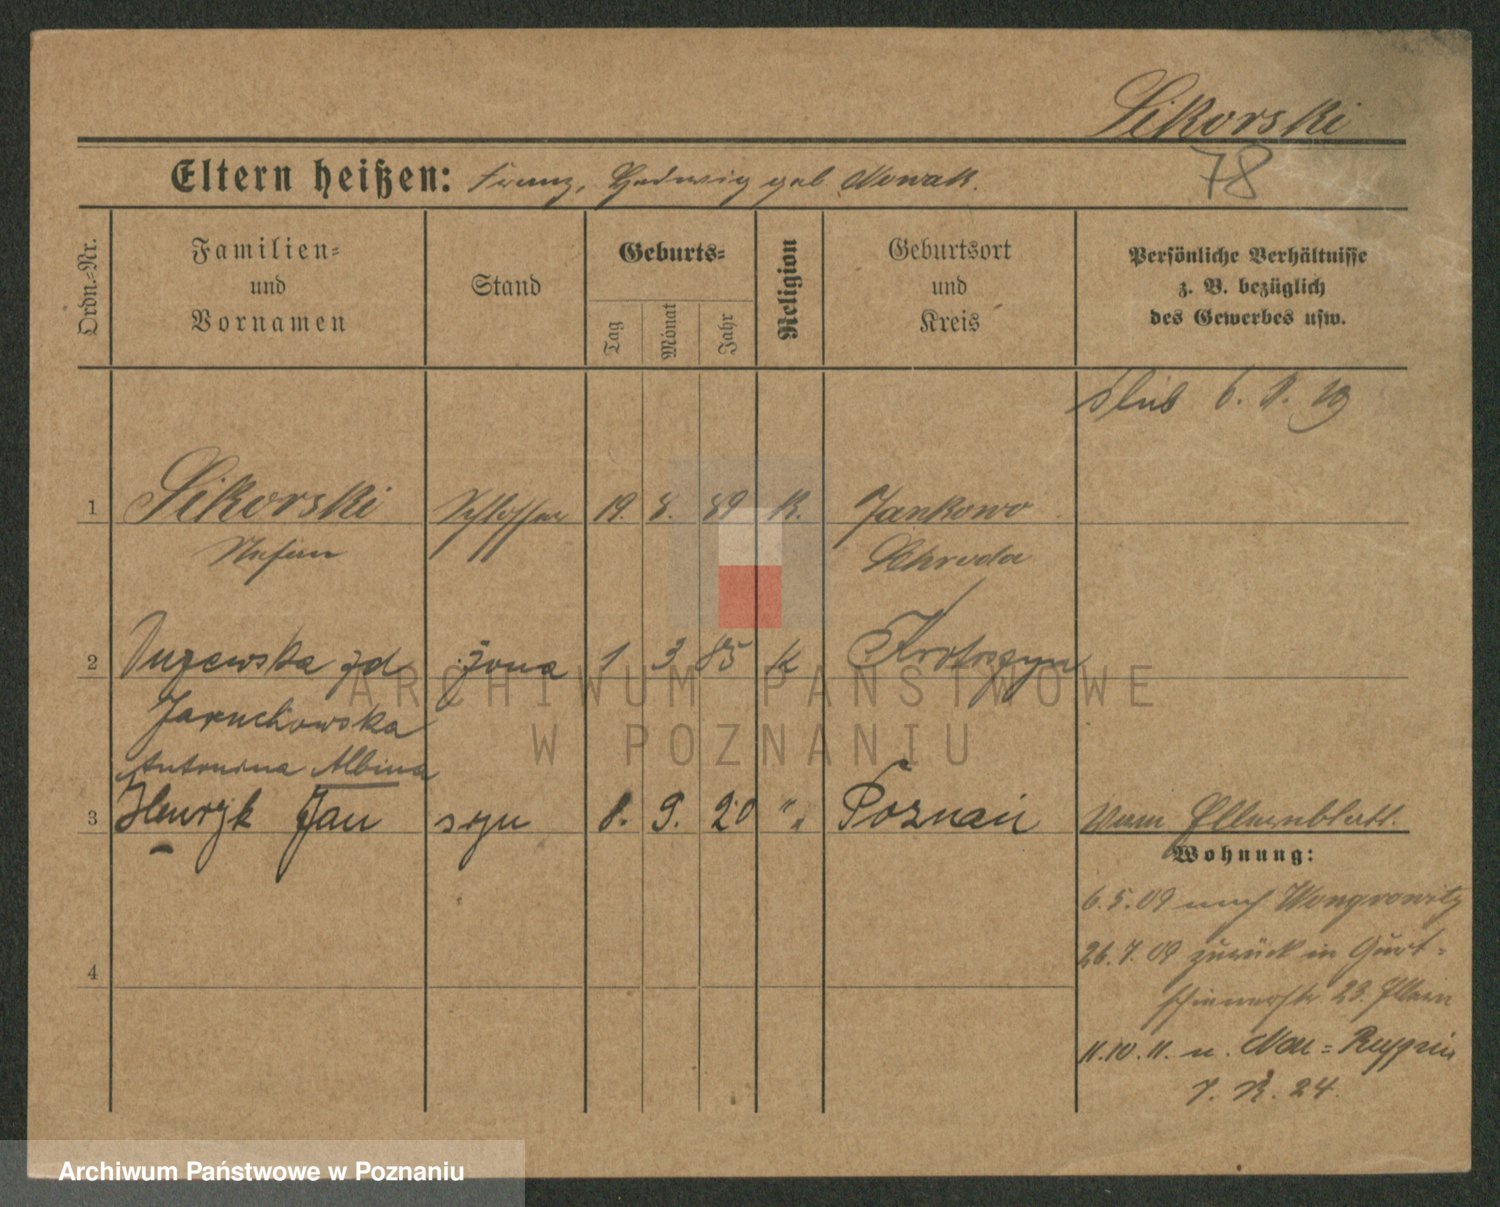 Sikorski
78
Eltern heißen: Franz, Hedwig geb Nowak.
Ordn.-Nr.
Familien- und Vornamen
Stand
Geburts-
Tag
Monat
Jahr
Religion
Geburtsort und Kreis
Persönliche Verhältnisse z. B. bezüglich des Gewerbes usw.
slub 6. 19
1 Sikorski Schlosser 19. 8. 89 K. Jankowo
Stefan Schroda
2 żona 1 3 85 k Krotoszyn
Jaruchowska
Antonina Albina
3 Henryk Jan syn 8. 9. 20 " Poznań Vom Elternblatt.
Wohnung:
6.5.09 nach Wongrowitz
26.7.09 zurück in Gurt-
schinerstr 23. Eltern
4
11.10.11. n. Neu=Ruppin
I. R. 24.
ARCHIWUM PAŃSTWOWE
W POZNANIU
Archiwum Państwowe w Poznaniu